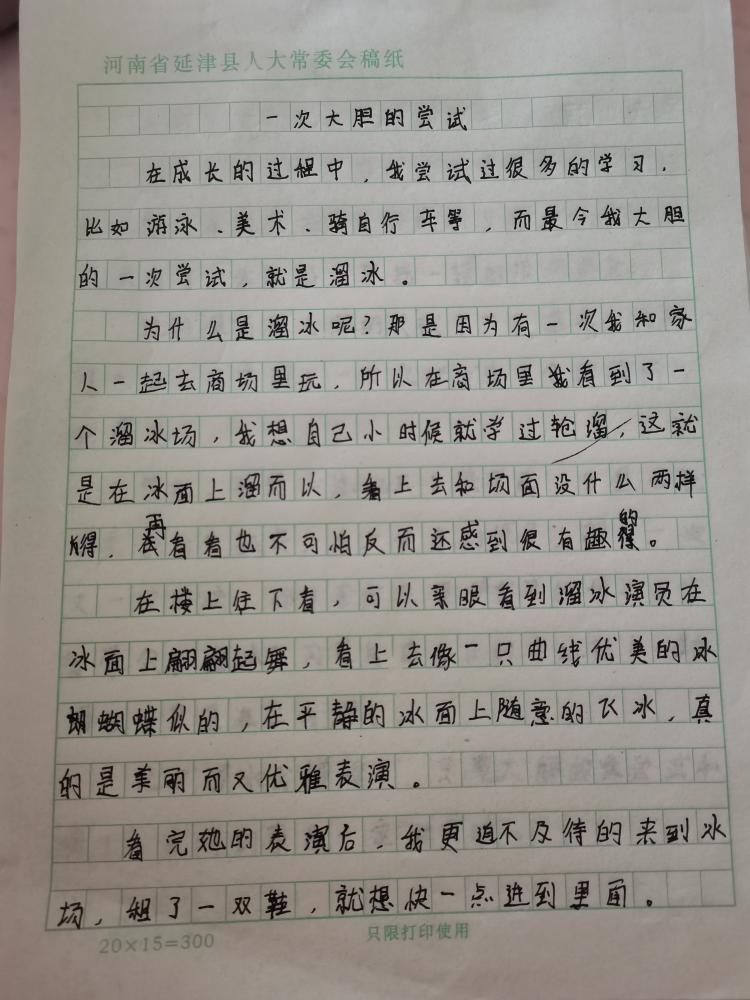 河南省延津县人大常委会稿纸
一次大胆的尝试
在成长的过程中，我尝试过很多的学习，
比如游泳、美术、骑自行车等，而最令我大胆
的一次尝试，就是溜冰。
为什么是溜冰呢？那是因为有一次我和家
人一起去商场里玩，所以在商场里我看到了一
个溜冰场，我想自己小时候就学过轮溜，这就
是在冰面上溜而以，看上去和场面没什么两样
得，再看看也不可怕反而还感到很有趣的。
在楼上往下看，可以亲眼看到溜冰演员在
冰面上翩翩起舞，看上去像一只曲线优美的冰
蝴蝶似的，在平静的冰面上随意的飞冰，真
的是美丽而又优雅表演。
看完她的表演后，我更迫不及待的来到冰
场，租了一双鞋，就想快一点进到里面。
20×15=300
只限打印使用